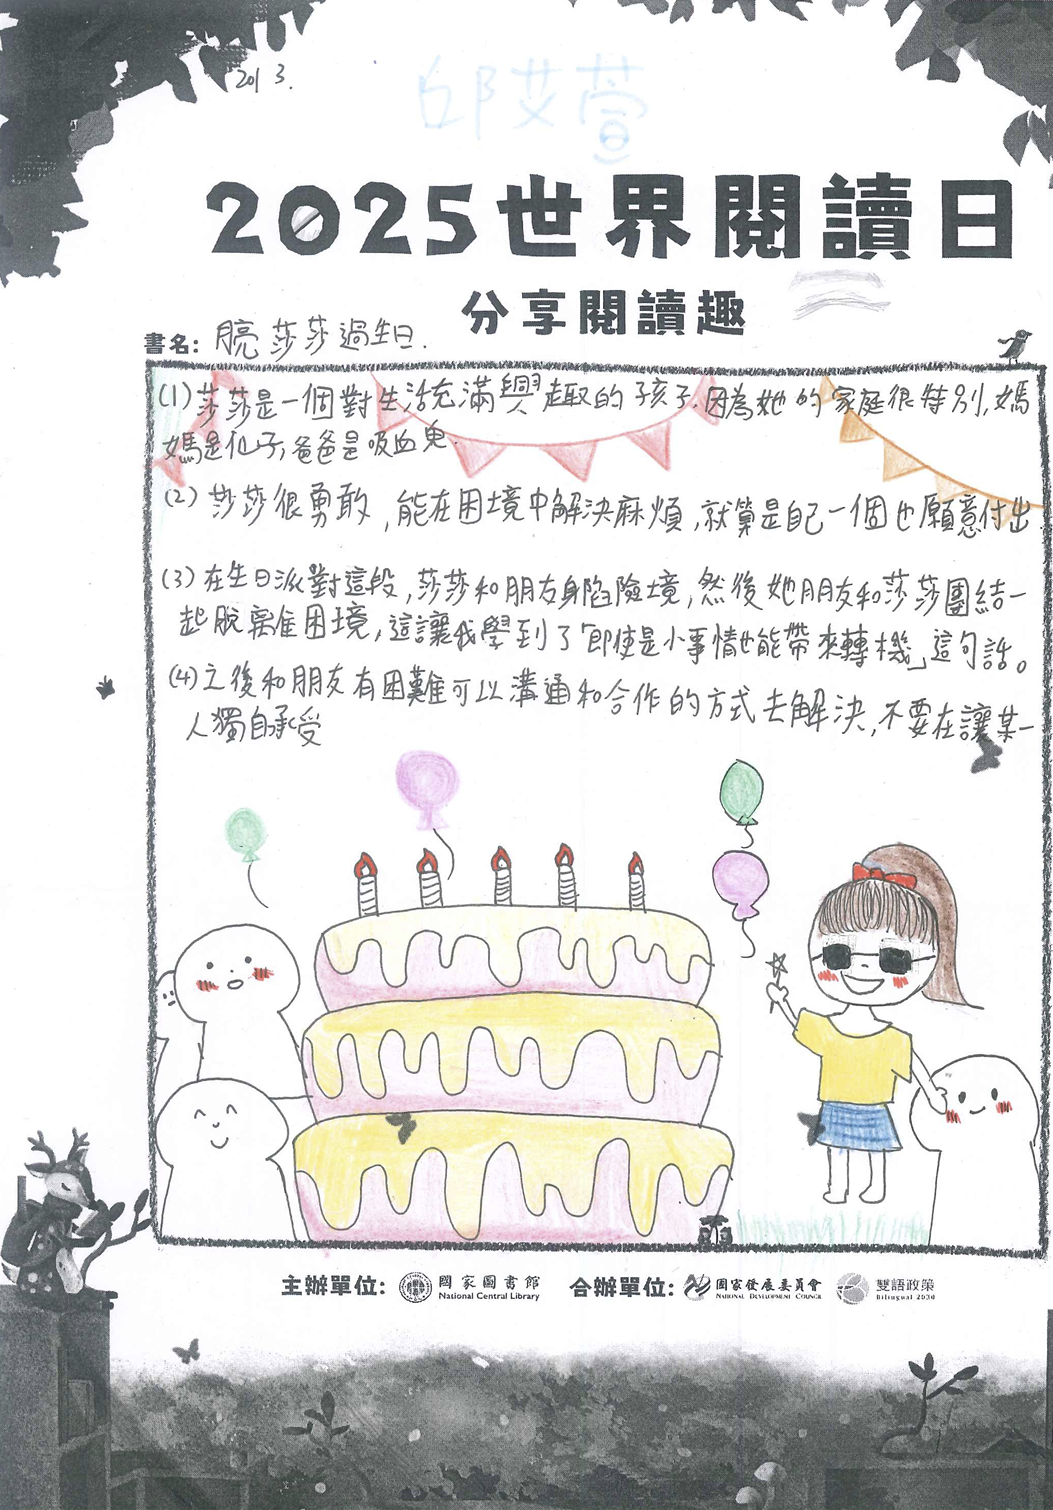 201 3.
邱艾萱
2025世界閱讀日
分享閱讀趣
書名: 莎莎過生日.
(1)莎莎是一個對生活充滿興趣的孩子.因為她的家庭很特別,媽
媽是仙子,爸爸是吸血鬼.
(2)莎莎很勇敢,能在困境中解決麻煩,就算是自己一個也願意付出
(3)在生日派對這段,莎莎和朋友身陷險境,然後她朋友和莎莎團結一
起脫離困境,這讓我學到了「即使是小事情也能帶來轉機」這句話。
(4)之後和朋友有困難可以溝通和合作的方式去解決,不要在讓某一
人獨自承受
主辦單位: 國家圖書館 合辦單位: 國家發展委員會 雙語政策
National Central Library NATIONAL DEVELOPMENT COUNCIL Bilingual 2030